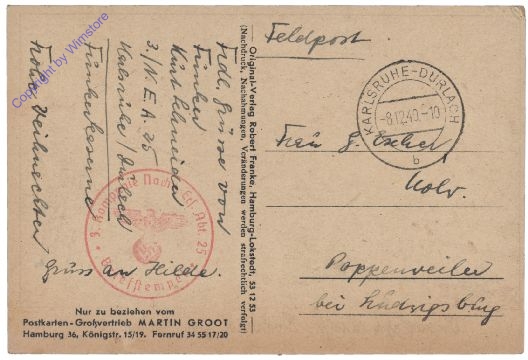 Feldpost
KARLSRUHE-DURLACH
-8.12.40.-10
b
Frau G. Eschel
Kolw.
Poppenweiler
bei Ludwigsburg
Original-Verlag Robert Franke, Hamburg-Lokstedt, 53 12 53
(Nachdruck, Nachahmungen, Veränderungen werden strafrechtlich verfolgt)
Frdl. Grüsse von
Funker
Kurt Schneider
3./N.E.A. 25
Karlsruhe/Durlach
Funkerkaserne
Frohe Weihnachten
Gruss an Hilde.
3. Kompanie Nachr. Ers. Abt. 25
Briefstempel
Nur zu beziehen vom
Postkarten-Großvertrieb MARTIN GROOT
Hamburg 36, Königstr. 15/19. Fernruf 34 55 17/20
Copyright by Wimstore